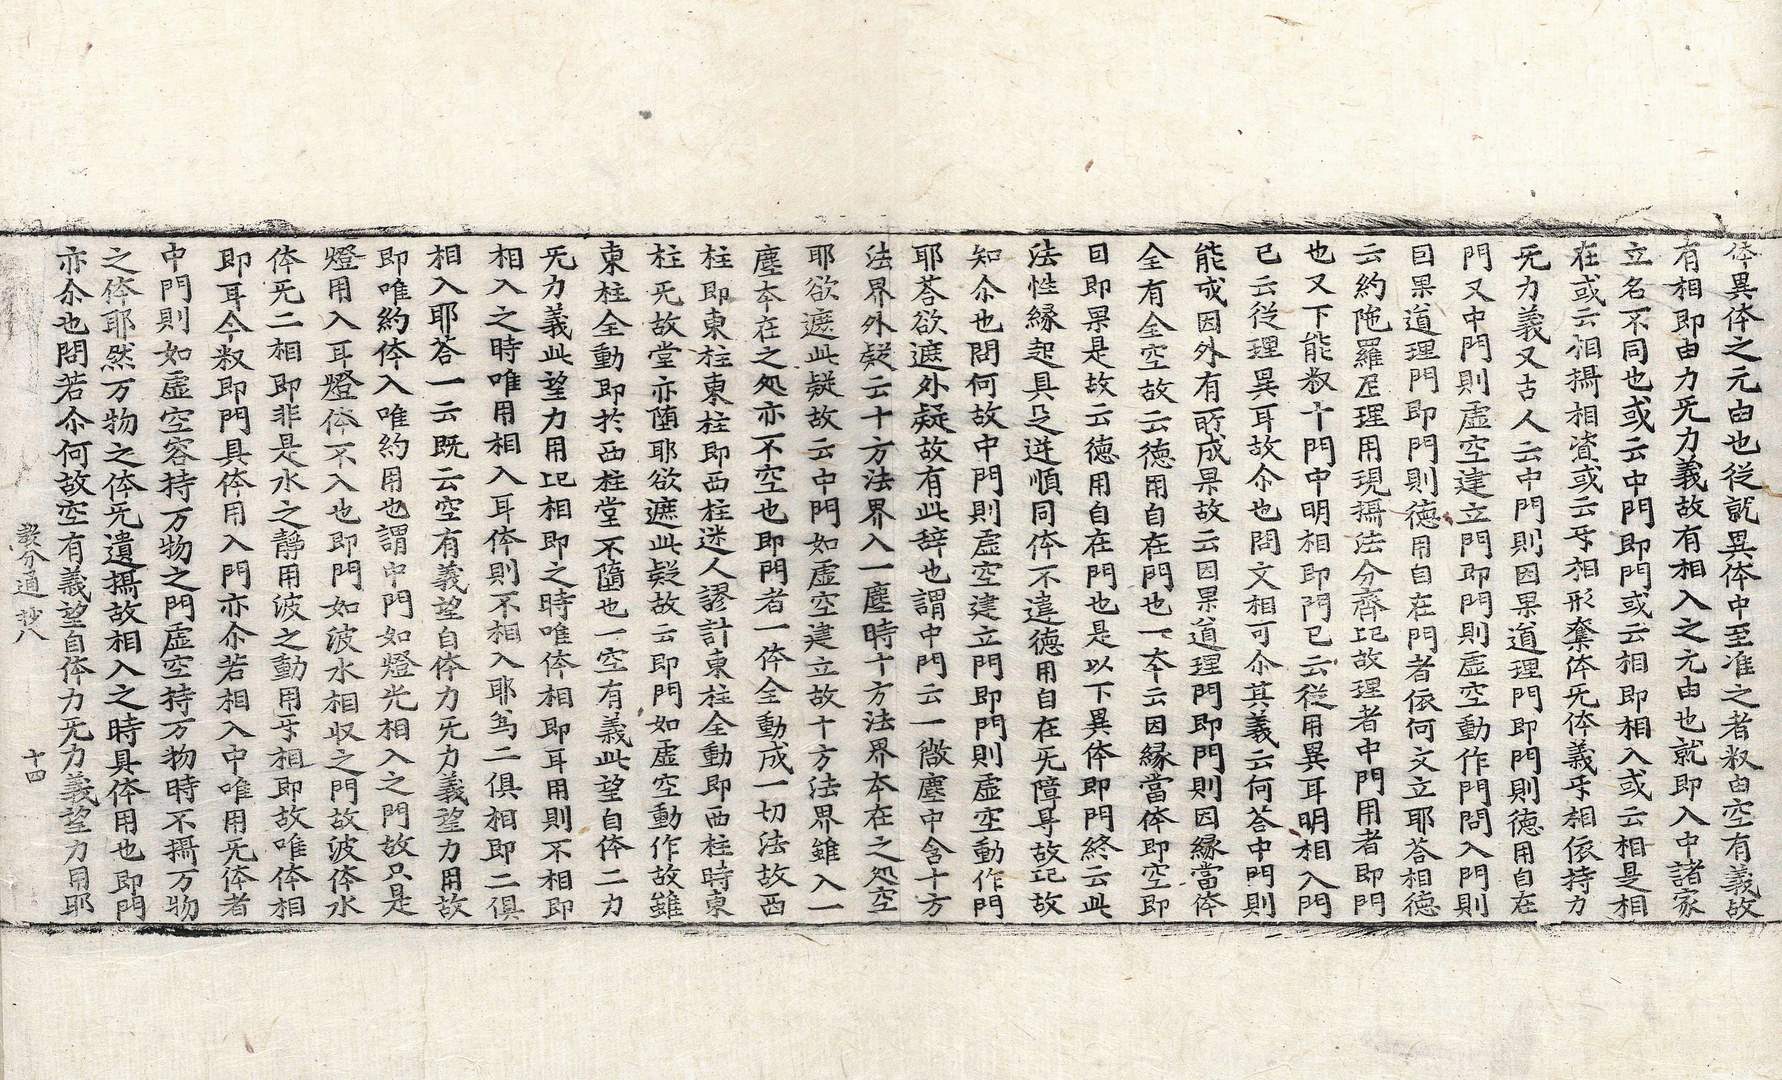 体異体之元由也従就異体中至准之者叙由空有義故
有相即由力旡力義故有相入之元由也就即入中諸家
立名不同也或云中門即門或云相即相入或云相是相
在或云相攝相資或云乎相形奪体旡体義乎相依持力
旡力義又古人云中門則因果道理門即門則徳用自在
門又中門則虚空建立門即門則虚空動作門問入門則
因果道理門即門則徳用自在門者依何文立耶荅相徳
云約陁羅尼理用現攝法分齊記故理者中門用者即門
也又下能叙十門中明相即門已云従用異耳明相入門
已云従理異耳故尒也問文相可尒其義云何荅中門則
能成因外有所成果故云因果道理門即門則因縁當体
全有全空故云徳用自在門也一本云因縁當体即空即
因即果是故云徳用自在門也是以下異体即門終云此
法性縁起具足逆順同体不違徳用自在旡障㝵故記故
知尒也問何故中門則虚空建立門即門則虚空動作門
耶荅欲遮外疑故有此辞也謂中門云一微塵中含十方
法界外疑云十方法界入一塵時十方法界本在之処空
耶欲遮此疑故云中門如虚空建立故十方法界雖入一
塵本在之処亦不空也即門者一体全動成一切法故西
柱即東柱東柱即西柱迷人謬計東柱全動即西柱時東
柱旡故堂亦墮耶欲遮此疑故云即門如虚空動作故雖
東柱全動即於西柱堂不墮也一空有義此望自体二力
旡力義此望力用記相即之時唯体相即耳用則不相即
相入之時唯用相入耳体則不相入耶為二俱相即二俱
相入耶荅一云既云空有義望自体力旡力義望力用故
即唯約体入唯約用也謂中門如燈光相入之門故只是
燈用入耳燈体不入也即門如波水相収之門故波体水
体旡二相即非是水之靜用波之動用乎相即故唯体相
即耳今叙即門具体用入門亦尒若相入中唯用旡体者
中門則如虚空容持万物之門虚空持万物時不攝万物
之体耶然万物之体旡遺攝故相入之時具体用也即門
亦尒也問若尒何故空有義望自体力旡力義望力用耶
教分通抄八　十四